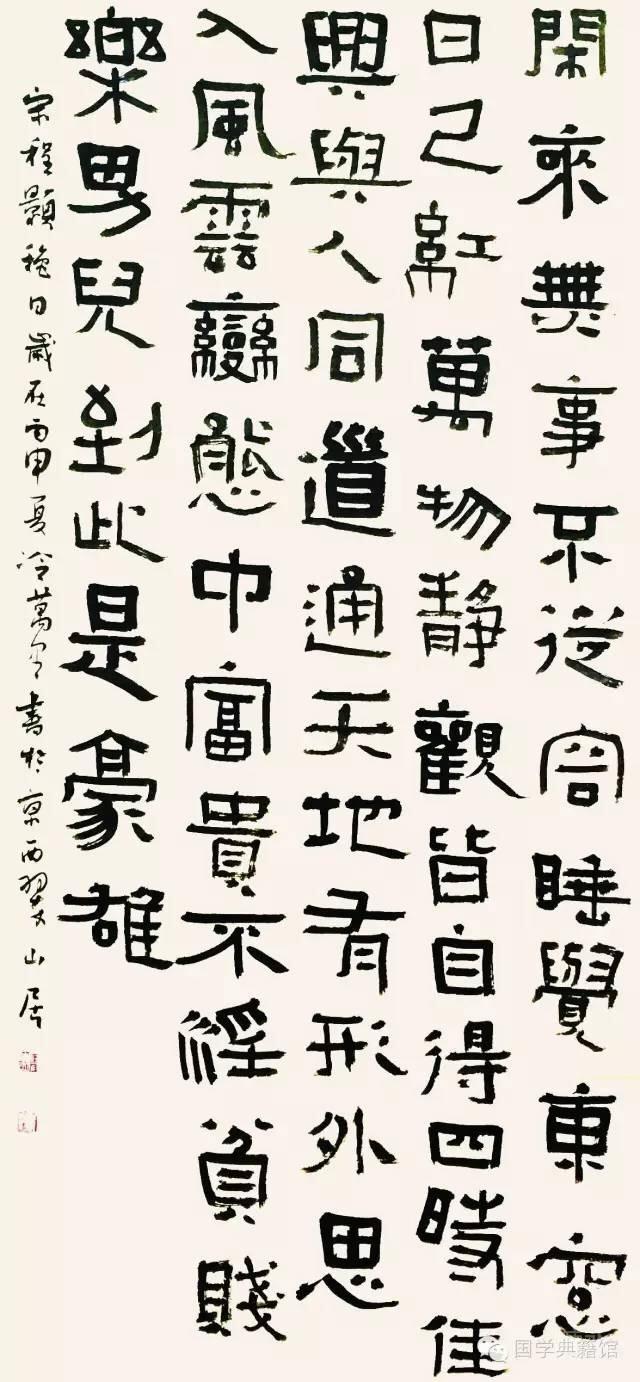 閑來無事不從容睡覺東窻
日已紅萬物靜觀皆自得四時佳
興與人同道通天地有形外思
入風雲變態中富貴不淫貧賤
樂男兒到此是豪雄
宋程顥穐日歲在丙申夏冷萬里書於京西翠山居
国学典籍馆